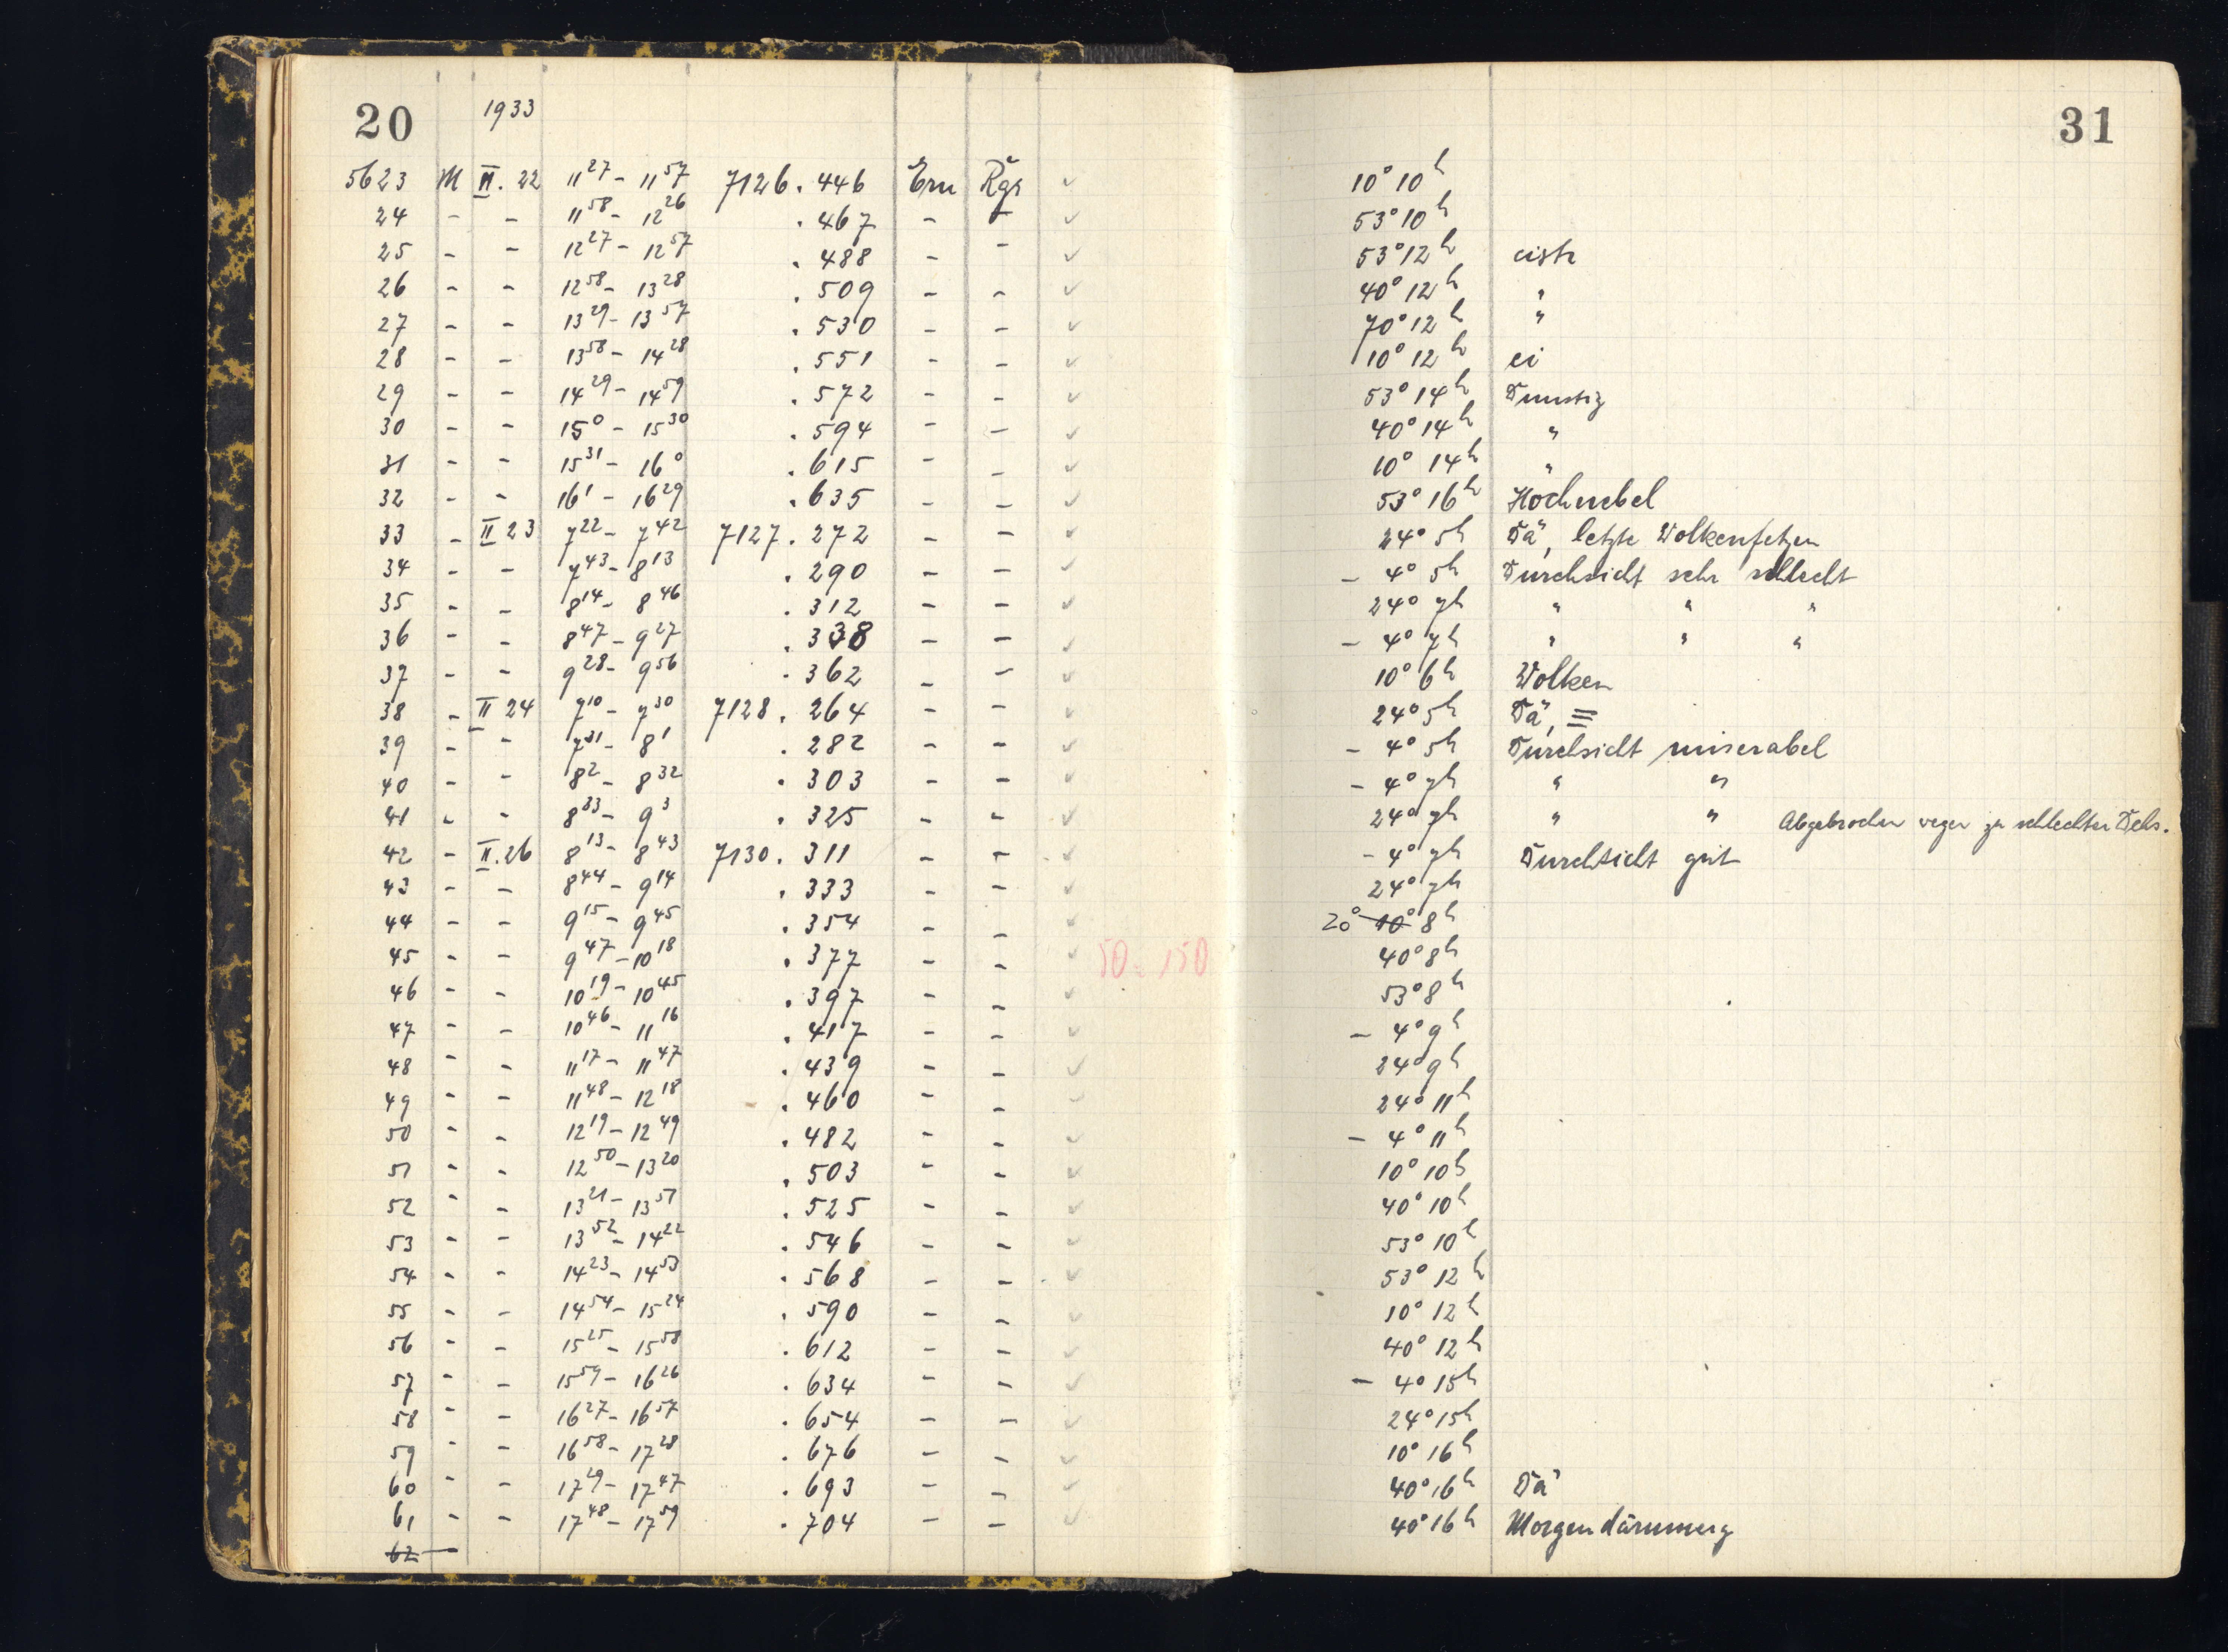 20 1933 31
5623 M II. 22 11 27 – 11 57 7126 . 446 Ern Rgr ✓ 10° 10 h
24 – – 11 58 – 12 26 . 467 – – ✓ 53° 10 h
25 – – 12 27 – 12 57 . 488 – – ✓ 53° 12 h cistr
26 – – 12 58 – 13 28 . 509 – – ✓ 40° 12 h "
27 – – 13 29 – 13 57 . 530 – – ✓ 70° 12 h "
28 – – 13 58 – 14 28 . 551 – – ✓ 10° 12 h ci
29 – – 14 29 – 14 59 . 572 – – ✓ 53° 14 h Dunstig
30 – – 15 0 – 15 30 . 594 – – ✓ 40° 14 h "
31 – – 15 31 – 16 0 . 615 – – ✓ 10° 14 h "
32 – – 16 1 – 16 29 . 635 – – ✓ 53° 16 h Hochnebel
33 – II 23 7 22 – 7 42 7127 . 272 – – ✓ 24° 5 h Dä, letzte Wolkenfetzen
34 – – 7 43 – 8 13 . 290 – – ✓ – 4° 5 h Durchsicht sehr schlecht
35 – – 8 14 – 8 46 . 312 – – ✓ 24° 7 h " " "
36 – – 8 47 – 9 27 . 338 – – ✓ – 4° 7 h " " "
37 – – 9 28 – 9 56 . 362 – – ✓ 10° 6 h Wolken
38 – II 24 7 10 – 7 30 7128 . 264 – – ✓ 24° 5 h Dä, ≡
39 – – 7 31 – 8 1 . 282 – – ✓ – 4° 5 h Durchsicht miserabel
40 – – 8 2 – 8 32 . 303 – – ✓ – 4° 7 h " "
41 – – 8 33 – 9 3 . 325 – – ✓ 24° 7 h " " Abgebrochen wegen zu schlechter Dchs.
42 – II. 26 8 13 – 8 43 7130 . 311 – – ✓ – 4° 7 h Durchsicht gut
43 – – 8 44 – 9 14 . 333 – – ✓ 24° 7 h
44 – – 9 15 – 9 45 . 354 – – ✓ 20° 10° 8 h
45 – – 9 47 – 10 18 . 377 – – ✓ 50 . 150 40° 8 h
46 – – 10 19 – 10 45 . 397 – – ✓ 53° 8 h
47 – – 10 46 – 11 16 . 417 – – ✓ – 4° 9 h
48 – – 11 17 – 11 47 . 439 – – ✓ 24° 9 h
49 – – 11 48 – 12 18 . 460 – – ✓ 24° 11 h
50 – – 12 19 – 12 49 . 482 – – ✓ – 4° 11 h
51 – – 12 50 – 13 20 . 503 – – ✓ 10° 10 h
52 – – 13 21 – 13 51 . 525 – – ✓ 40° 10 h
53 – – 13 52 – 14 22 . 546 – – ✓ 53° 10 h
54 – – 14 23 – 14 53 . 568 – – ✓ 53° 12 h
55 – – 14 54 – 15 24 . 590 – – ✓ 10° 12 h
56 – – 15 25 – 15 58 . 612 – – ✓ 40° 12 h
57 – – 15 59 – 16 26 . 634 – – ✓ – 4° 15 h
58 – – 16 27 – 16 57 . 654 – – ✓ 24° 15 h
59 – – 16 58 – 17 28 . 676 – – ✓ 10° 16 h
60 – – 17 29 – 17 47 . 693 – – ✓ 40° 16 h Dä
61 – – 17 48 – 17 59 . 704 – – ✓ 40° 16 h Morgendämmerg
62 –